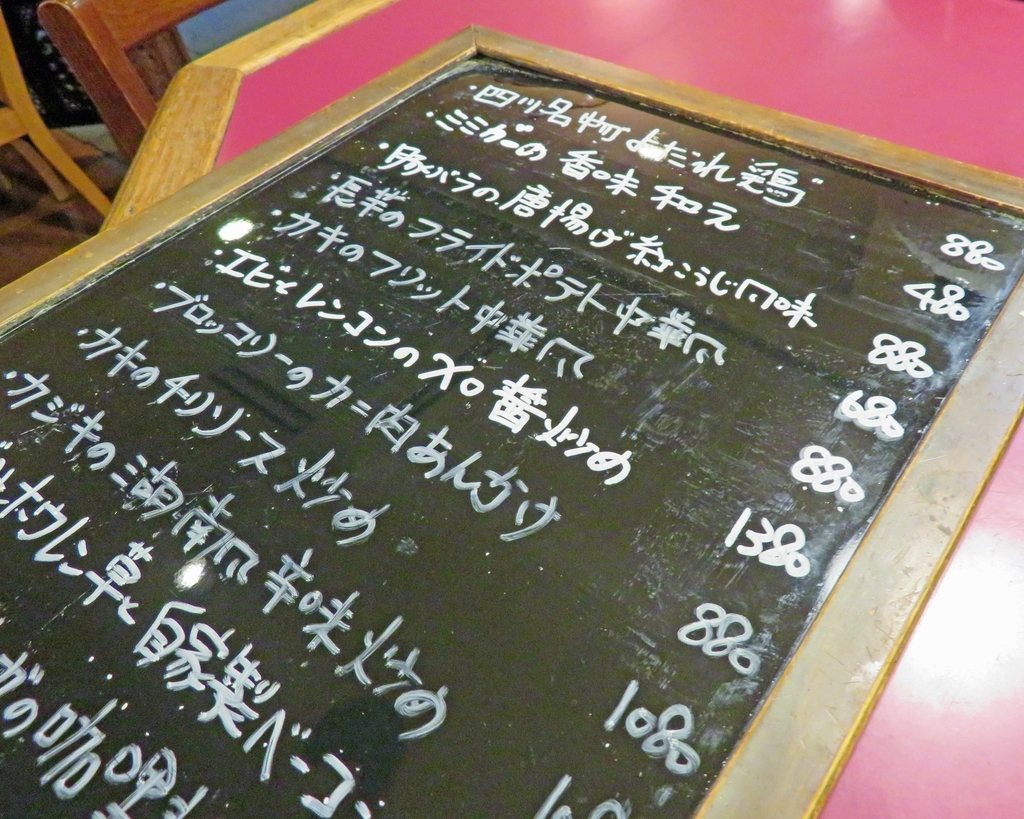 ・四川名物 よだれ鶏 880
・ミミガーの 香味 和え 480
・豚バラの 唐揚げ 紅こうじ風味 880
・長芋のフライドポテト中華風 680
・カキのフリット中華風 880
・エビとレンコンのXO醤炒め 1380
・ブロッコリーのカニ肉あんかけ 880
・カキのチリソース炒め 1080
・カジキの湖南風辛味炒め
ホウレン草と自家製ベーコ
ガの咖哩